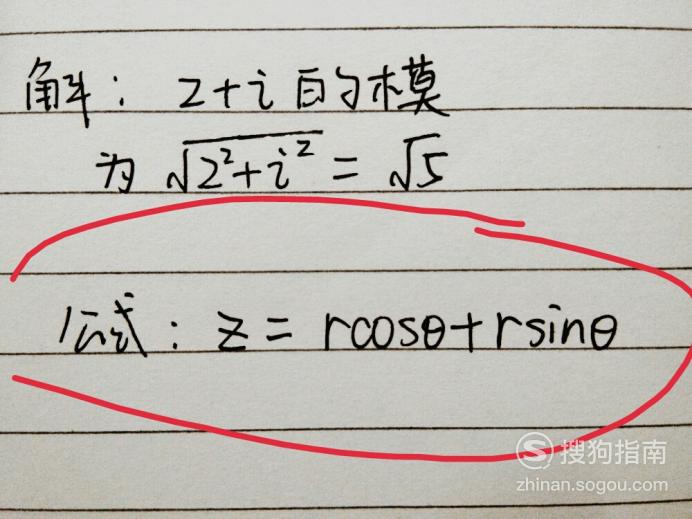 解：2+i的模
为 √2²+i² = √5
公式：z = rcosθ+rsinθ
搜狗指南
zhinan.sogou.com